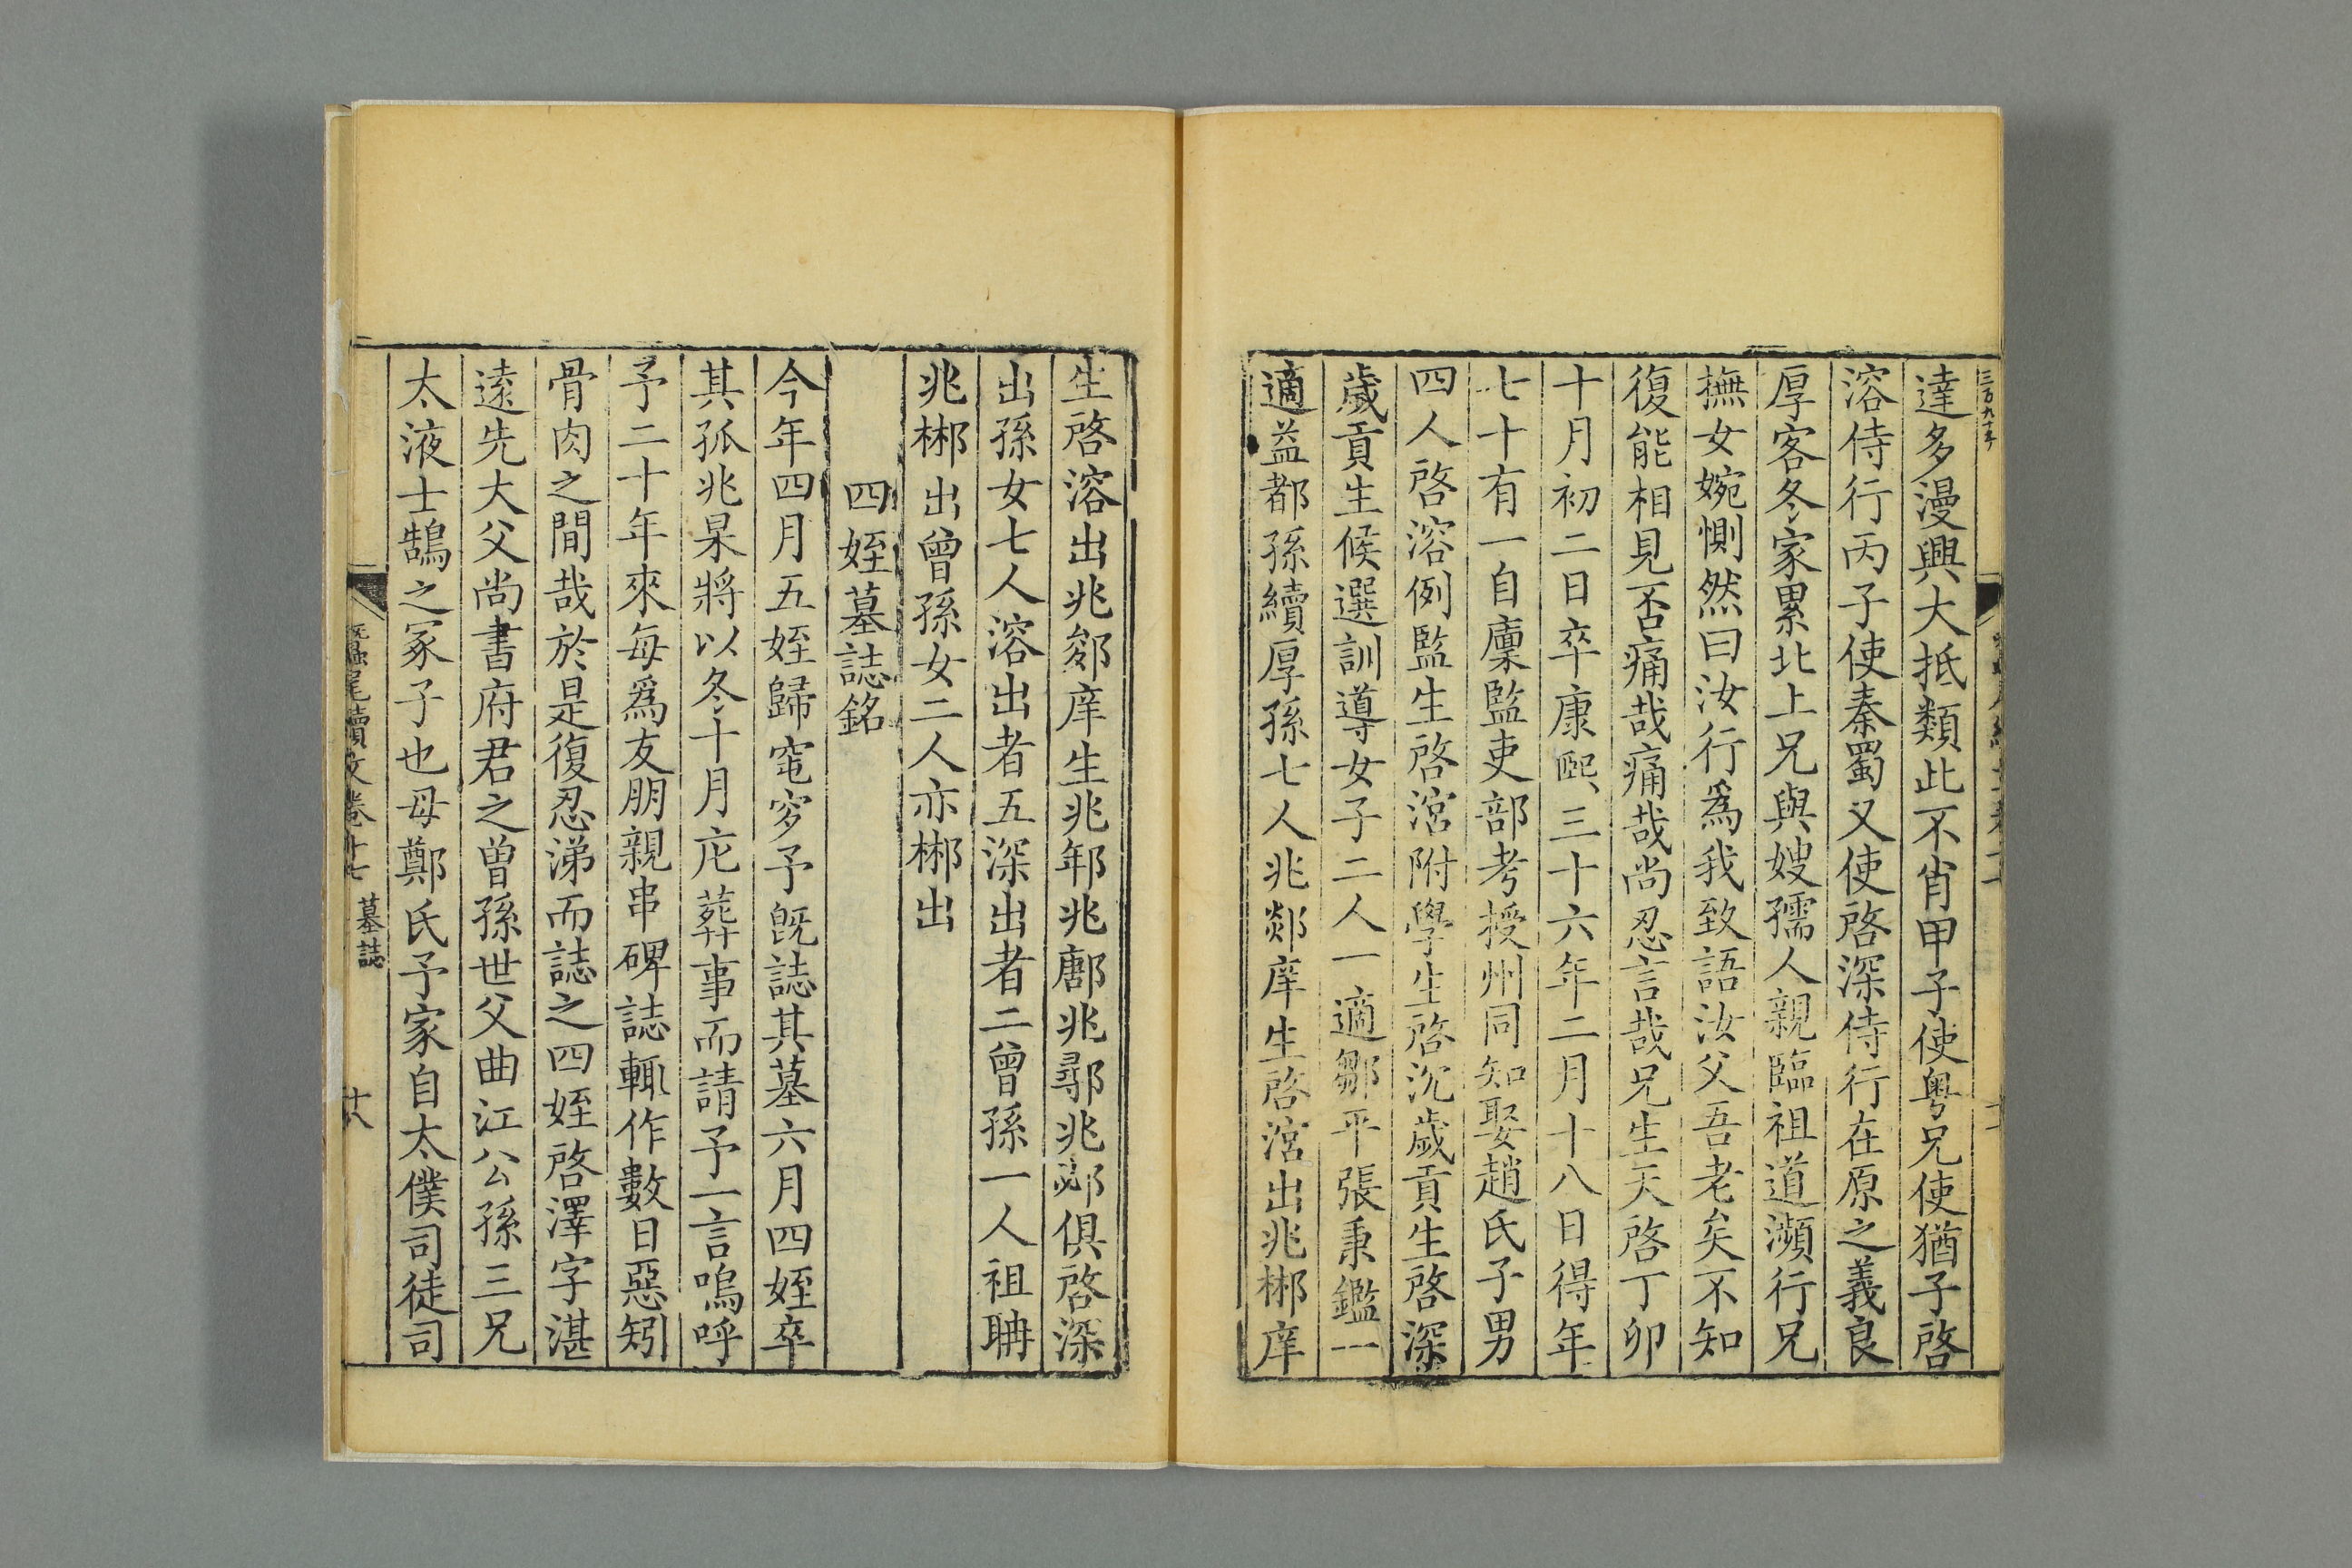 達多漫興大抵類此不肯甲子使粤兄使猶子啓
溶侍行丙子使秦蜀又使啓深侍行在原之義良
厚客冬家累北上兄與嫂孺人親臨祖道瀕行兄
撫女婉惻然曰汝行爲我致語汝父吾老矣不知
復能相見否痛哉痛哉尚忍言哉兄生天啓丁卯
十月初二日卒康熙三十六年二月十八日得年
七十有一自廩監吏部考授州同知娶趙氏子男
四人啓溶例監生啓涫附學生啓沉歲貢生啓深
歲貢生候選訓導女子二人一適鄒平張秉鑑一
適益都孫續厚孫七人兆郯庠生啓涫出兆郴庠
生啓溶出兆郯庠生兆邾兆鄌兆鄩兆邲俱啓深
出孫女七人溶出者五深出者二曾孫一人祖聃
兆郴出曾孫女二人亦郴出
四姪墓誌銘
今年四月五姪歸窀穸予旣誌其墓六月四姪卒
其孤兆杲將以冬十月庀葬事而請予一言嗚呼
予二十年來每爲友朋親串碑誌輒作數日惡矧
骨肉之間哉於是復忍涕而誌之四姪啓澤字湛
遠先大父尚書府君之曾孫世父曲江公孫三兄
太液士鵠之冢子也母鄭氏予家自太僕司徒司
蠶尾續文卷十七 墓誌 廿八